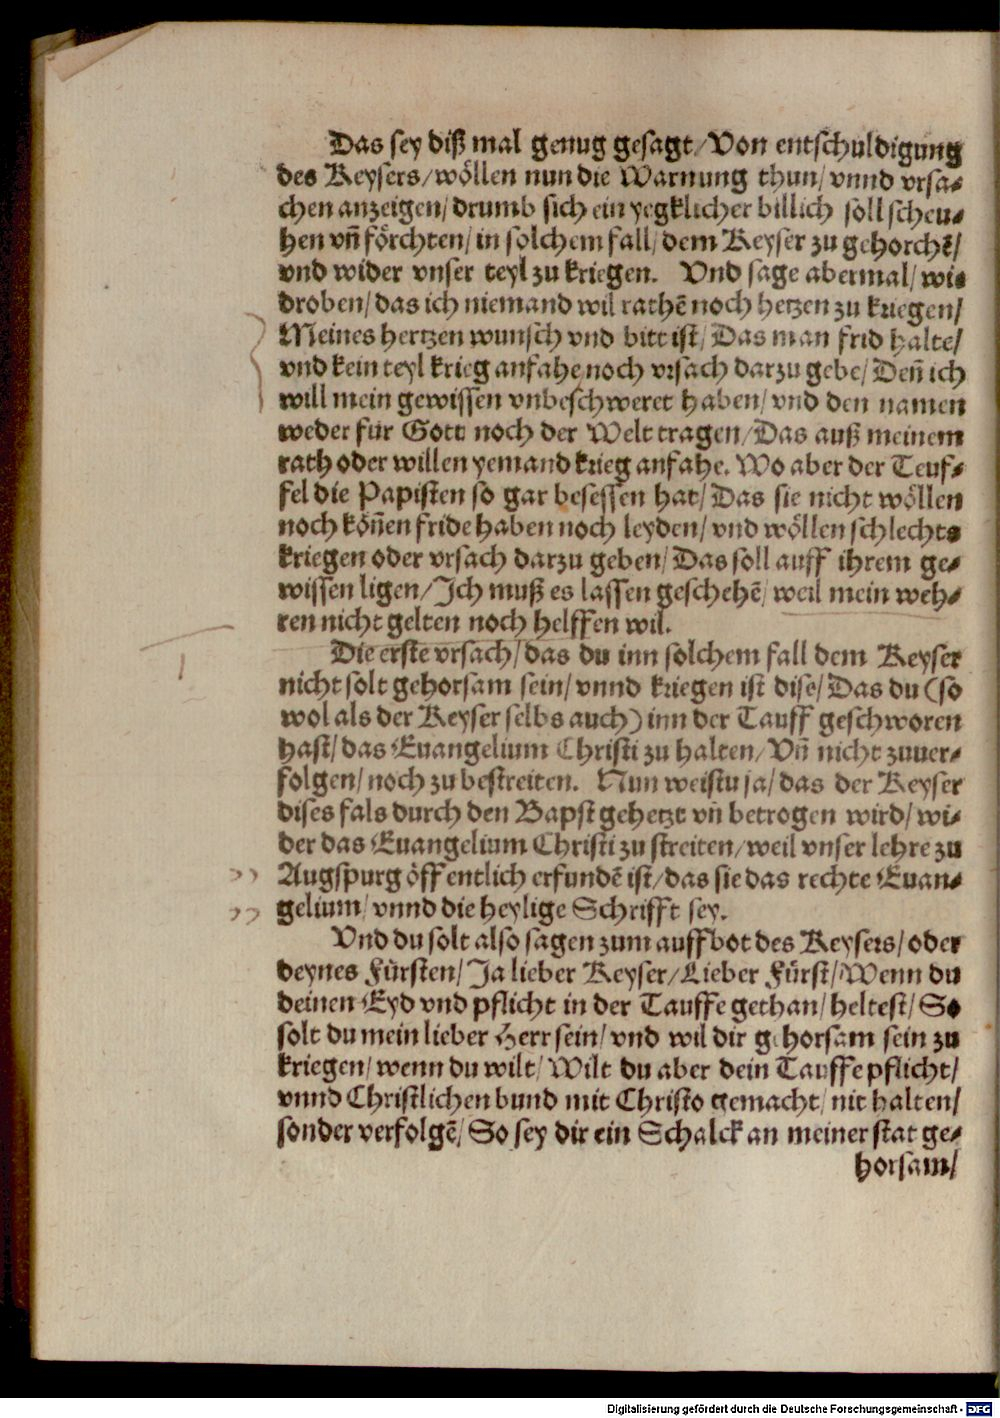 Das sey diß mal genug gesagt/Von entschuldigung
des Keysers/wöllen nun die Warnung thun/vnnd vrsa-
chen anzeigen/drumb sich ein yegklicher billich soll scheu-
hen vñ förchten/in solchem fall/dem Keyser zu gehorchẽ/
vnd wider vnser teyl zu kriegen. Vnd sage abermal/wie
droben/das ich niemand wil rathẽ noch hetzen zu kriegen/
Meines hertzen wunsch vnd bitt ist/Das man frid halte/
vnd kein teyl krieg anfahe noch vrsach darzu gebe/Deñ ich
will mein gewissen vnbeschweret haben/vnd den namen
weder für Gott noch der Welt tragen/Das auß meinem
rath oder willen yemand krieg anfahe. Wo aber der Teuf-
fel die Papisten so gar besessen hat/Das sie nicht wöllen
noch köñen fride haben noch leyden/vnd wöllen schlechts
kriegen oder vrsach darzu geben/Das soll auff ihrem ge-
wissen ligen/Ich muß es lassen geschehẽ/weil mein weh-
ren nicht gelten noch helffen wil.
Die erste vrsach/das du inn solchem fall dem Keyser
nicht solt gehorsam sein/vnnd kriegen ist dise/Das du (so
wol als der Keyser selbs auch) inn der Tauff geschworen
hast/das Euangelium Christi zu halten/Vñ nicht zuuer-
folgen/noch zu bestreiten. Nun weistu ja/das der Keyser
dises fals durch den Bapst gehetzt vñ betrogen wird/wi-
der das Euangelium Christi zu streiten/weil vnser lehre zu
Augspurg öffentlich erfundẽ ist/das sie das rechte Euan-
gelium/vnnd die heylige Schrifft sey.
Vnd du solt also sagen zum auffbot des Keysers/oder
deynes Fürsten/Ja lieber Keyser/Lieber Fürst/Wenn du
deinen Eyd vnd pflicht in der Tauffe gethan/heltest/So
solt du mein lieber Herr sein/vnd wil dir gehorsam sein zu
kriegen/wenn du wilt/Wilt du aber dein Tauffe pflicht/
vnnd Christlichen bund mit Christo gemacht/nit halten/
sonder verfolgẽ/So sey dir ein Schalck an meiner stat ge-
horsam/
Digitalisierung gefördert durch die Deutsche Forschungsgemeinschaft - DFG